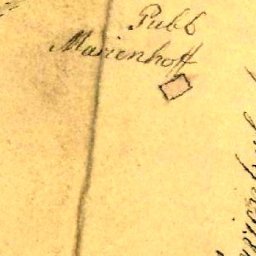 Pubb
Marienhoff